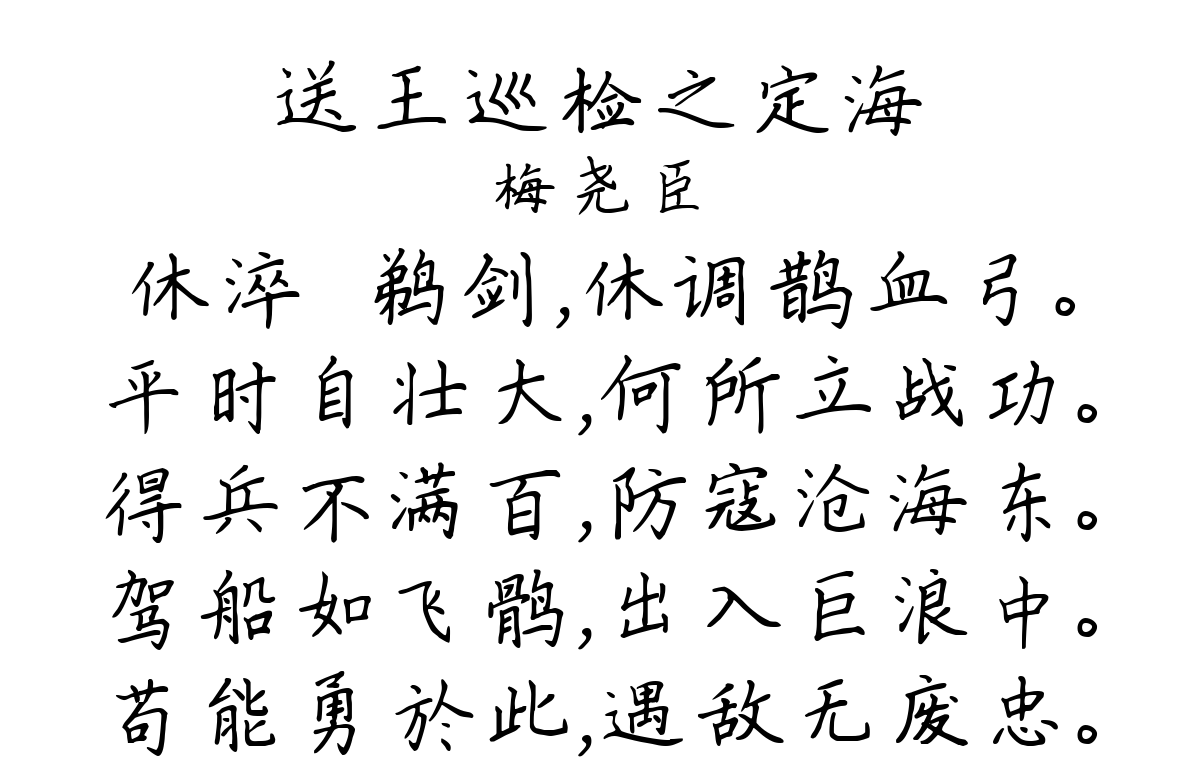 送王巡检之定海
梅尧臣
休淬 鹈剑,休调鹊血弓。
平时自壮大,何所立战功。
得兵不满百,防寇沧海东。
驾船如飞鹘,出入巨浪中。
苟能勇於此,遇敌无废忠。